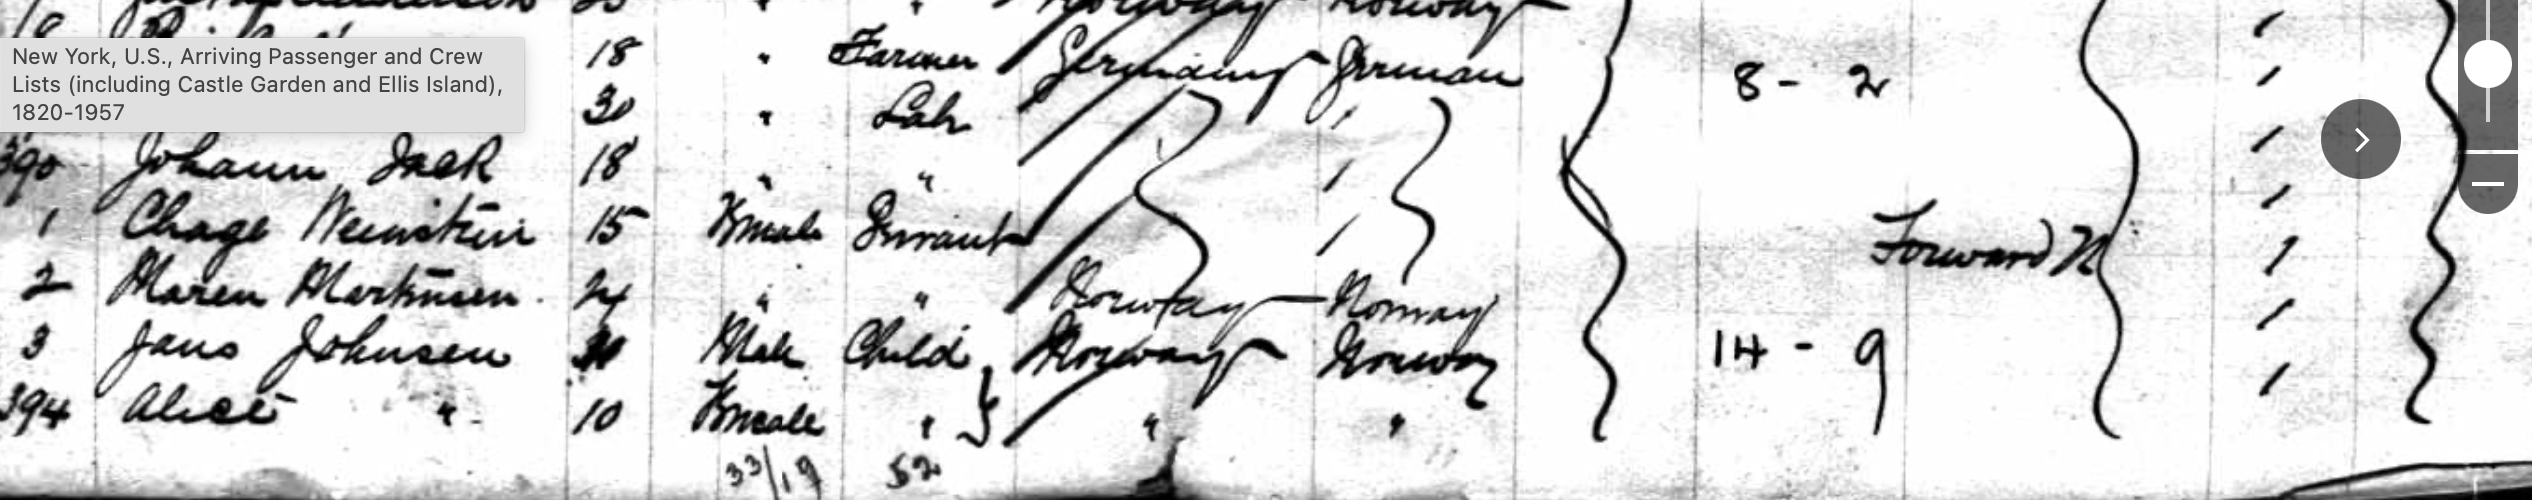 New York, U.S., Arriving Passenger and Crew
Lists (including Castle Garden and Ellis Island),
1820-1957
Norway Norway
18 " Farmer Germany German 8 - 2
30 " Lab "
390 Johann Jack 18 " " "
1 Chage Weinstein 15 Female Servant " Forward
2 Maren Martinsen 24 " " Norway Norway
3 Jans Johnsen Male Child Norway Norway 14 - 9
394 Alice " 10 Female " " "
33/19 52